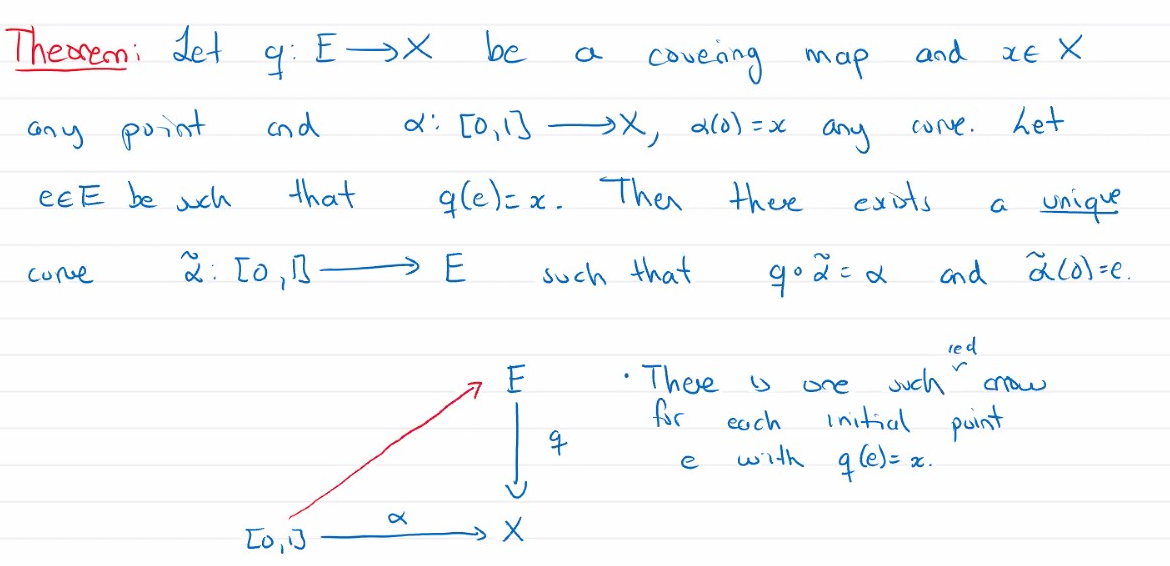 Theorem: Let q: E ⟶ X be a covering map and x ∈ X
any point and α: [0,1] ⟶ X, α(0) = x any curve. Let
e ∈ E be such that q(e) = x. Then there exists a unique
curve α̃: [0,1] ⟶ E such that q∘α̃ = α and α̃(0) = e.
E
q
[0,1] α X
• There is one such red arrow
for each initial point
e with q(e) = x.